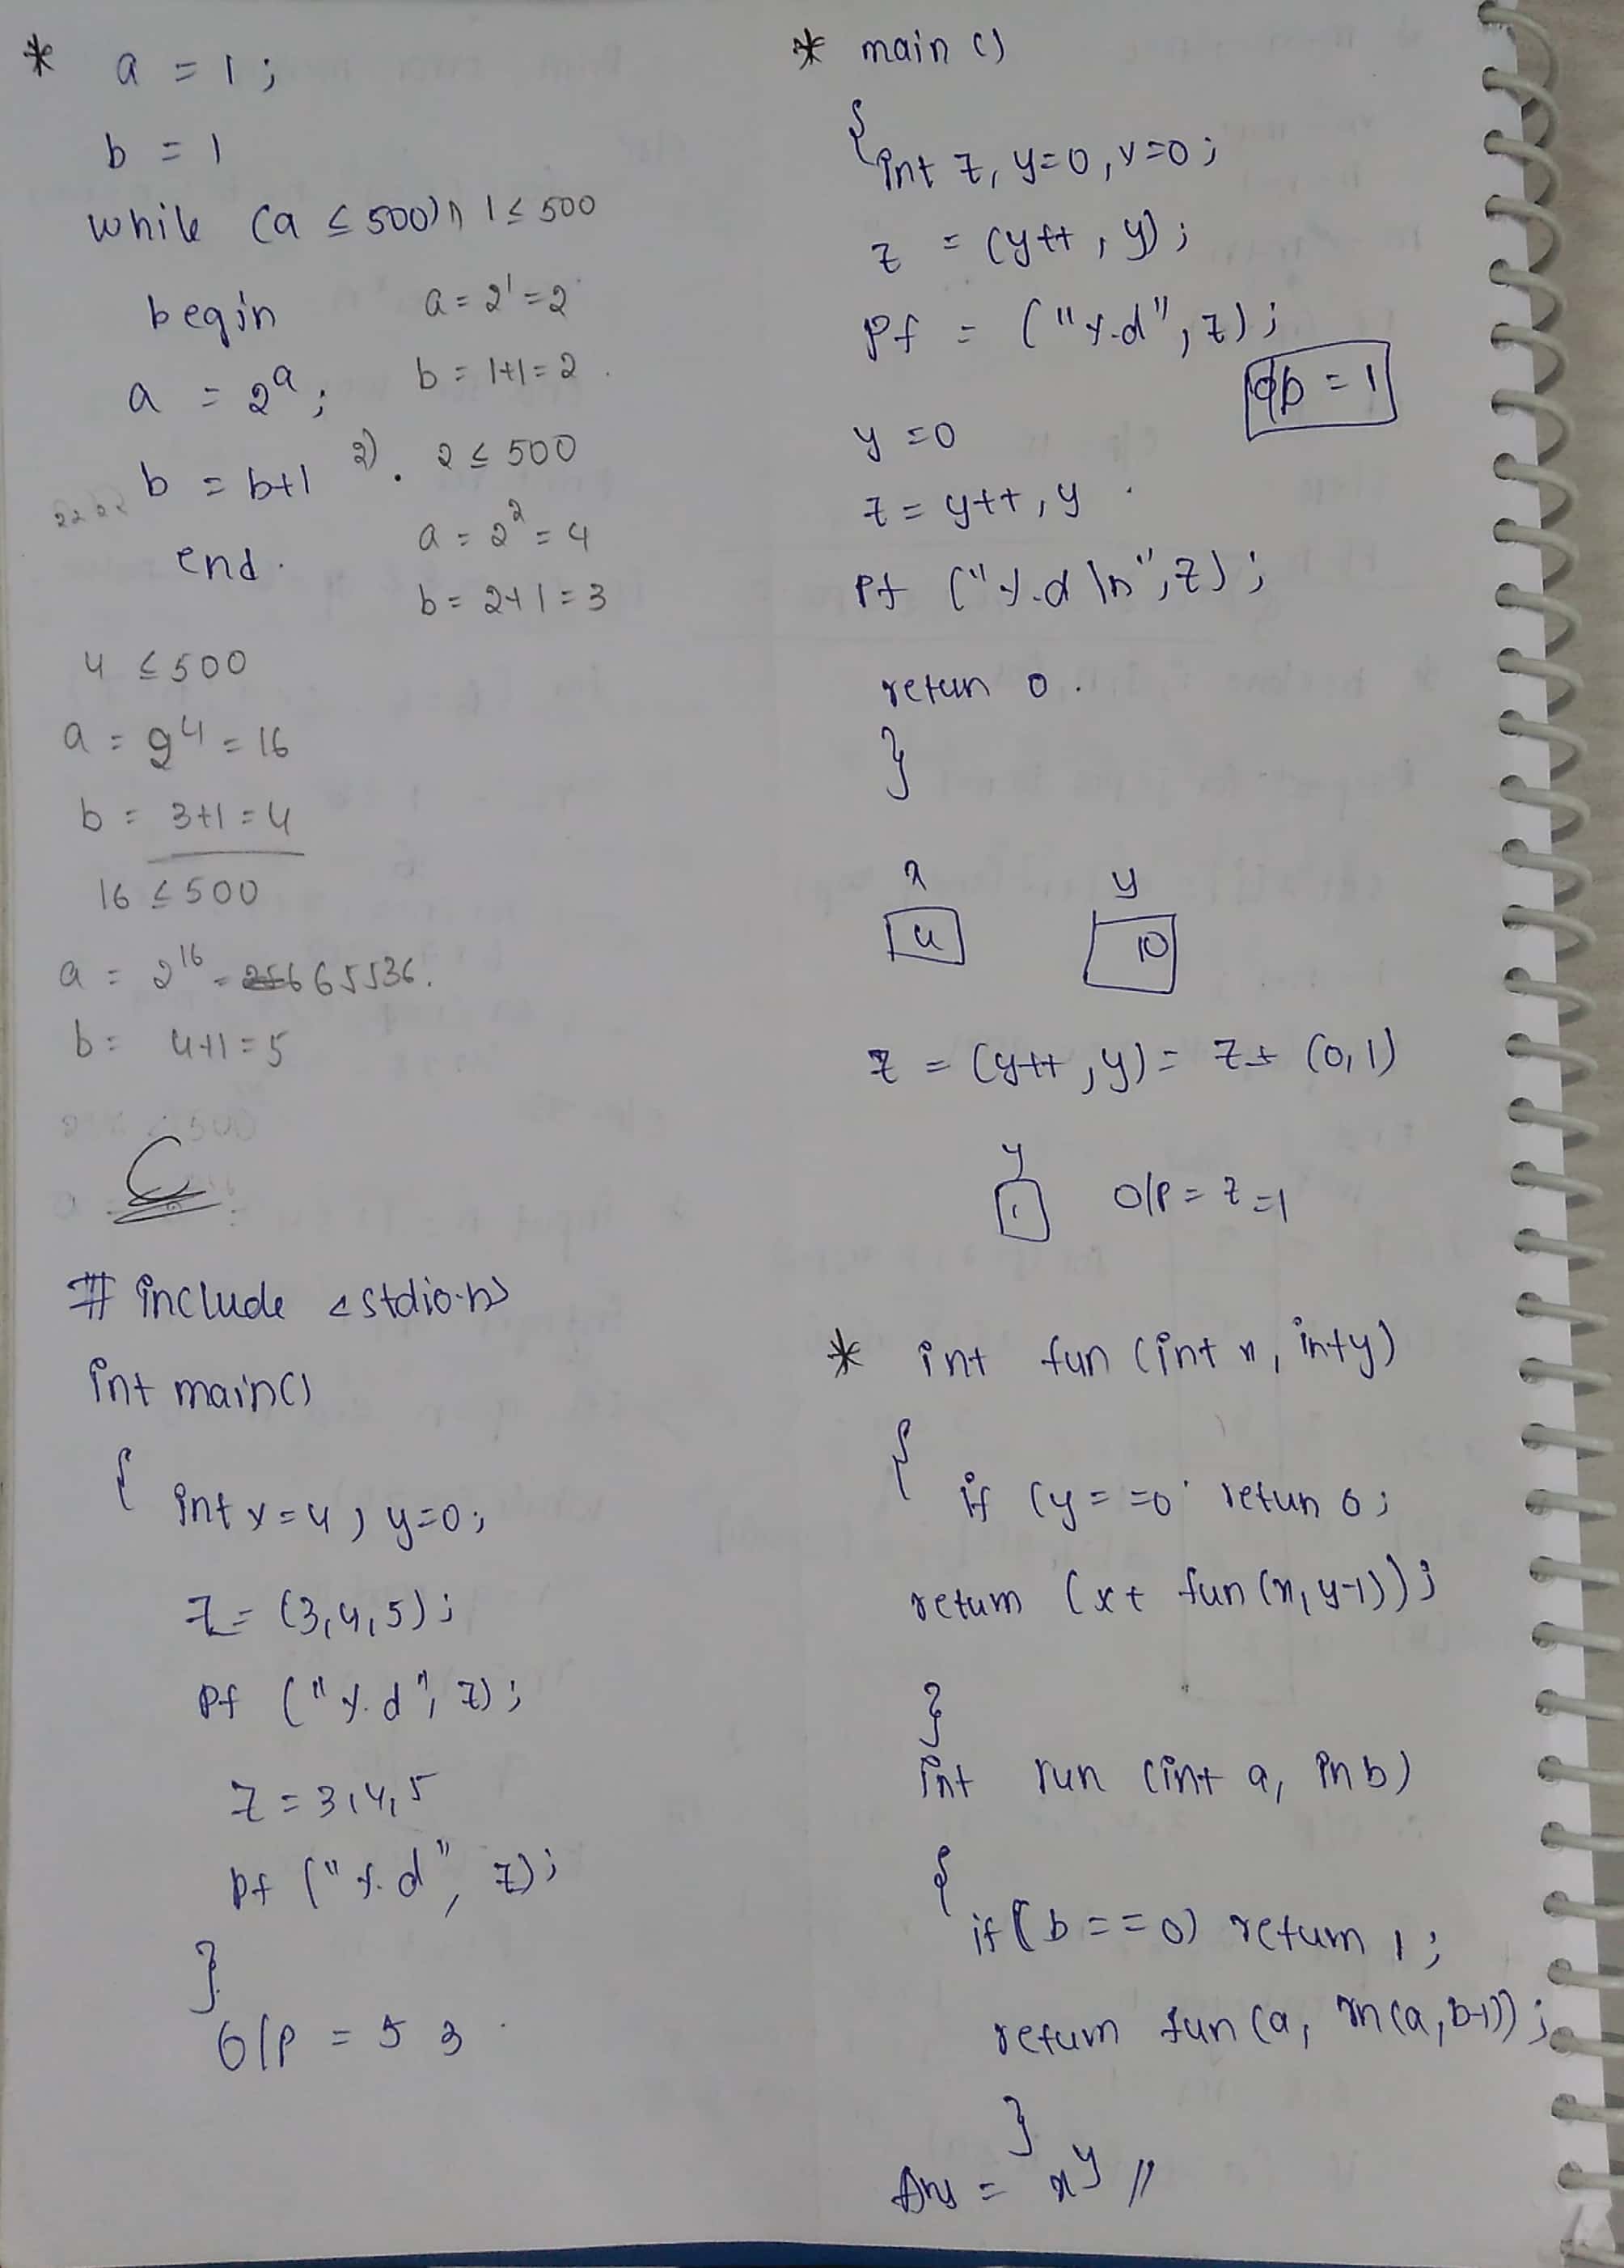 * a = 1;
b = 1
while (a ≤ 500) 1 ≤ 500
begin
a = 2¹ = 2
a = 2ᵃ;
b = 1+1 = 2.
b = b+1
2). 2 ≤ 500
a = 2² = 4
end.
b = 2+1 = 3
4 ≤ 500
a = 2⁴ = 16
b = 3+1 = 4
16 ≤ 500
a = 2¹⁶ = 65536.
b = 4+1 = 5
C
# include <stdio.h>
int main()
{
int x=4, y=0;
z = (3,4,5);
Pf ("%d", z);
z = 3,4,5
pf ("%d", z);
}
O/P = 5 3.
* main ()
{
int z, y=0, x=0;
z = (y++, y);
Pf = ("%d", z);
op = 1
y = 0
z = y++, y.
Pf ("%d \n", z);
retun 0.
}
x y
4 10
z = (y++, y) = z = (0,1)
y
1 O/P = z = 1
* int fun (int x, int y)
{
if (y==0 retun 0;
return (x+ fun(x, y-1));
}
int run (int a, in b)
{
if (b==0) return 1;
return fun (a, rn(a, b-1));
}
Ans = xʸ //